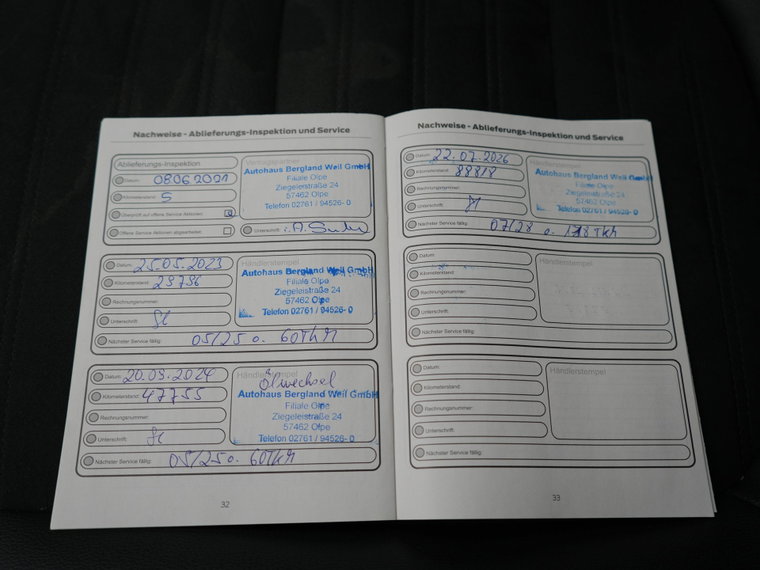 Nachweise - Ablieferungs-Inspektion und Service
Ablieferungs-Inspektion
Datum: 08.06.2021
Kilometerstand: 5
Überprüft auf offene Service Aktionen:
Offene Service Aktionen abgearbeitet:
Vertragspartner
Autohaus Bergland Weil GmbH
Filiale Olpe
Ziegeleistraße 24
57462 Olpe
Telefon 02761 / 94526- 0
Unterschrift: i.A.
Datum: 25.05.2023
Kilometerstand: 29796
Rechnungsnummer:
Unterschrift:
Händlerstempel
Autohaus Bergland Weil GmbH
Filiale Olpe
Ziegeleistraße 24
57462 Olpe
Telefon 02761 / 94526- 0
Nächster Service fällig: 05/25 o. 60Tkm
Datum: 20.09.2024
Kilometerstand: 47755
Rechnungsnummer:
Unterschrift:
Händlerstempel
Ölwechsel
Autohaus Bergland Weil GmbH
Filiale Olpe
Ziegeleistraße 24
57462 Olpe
Telefon 02761 / 94526- 0
Nächster Service fällig: 05/25 o. 60Tkm
32
Nachweise - Ablieferungs-Inspektion und Service
Datum: 22.07.2026
Kilometerstand: 88818
Rechnungsnummer:
Unterschrift:
Händlerstempel
Autohaus Bergland Weil GmbH
Filiale Olpe
Ziegeleistraße 24
57462 Olpe
Telefon 02761 / 94526- 0
Nächster Service fällig: 07/28 o.
Datum:
Kilometerstand:
Rechnungsnummer:
Unterschrift:
Händlerstempel
Nächster Service fällig:
Datum:
Kilometerstand:
Rechnungsnummer:
Unterschrift:
Händlerstempel
Nächster Service fällig:
33